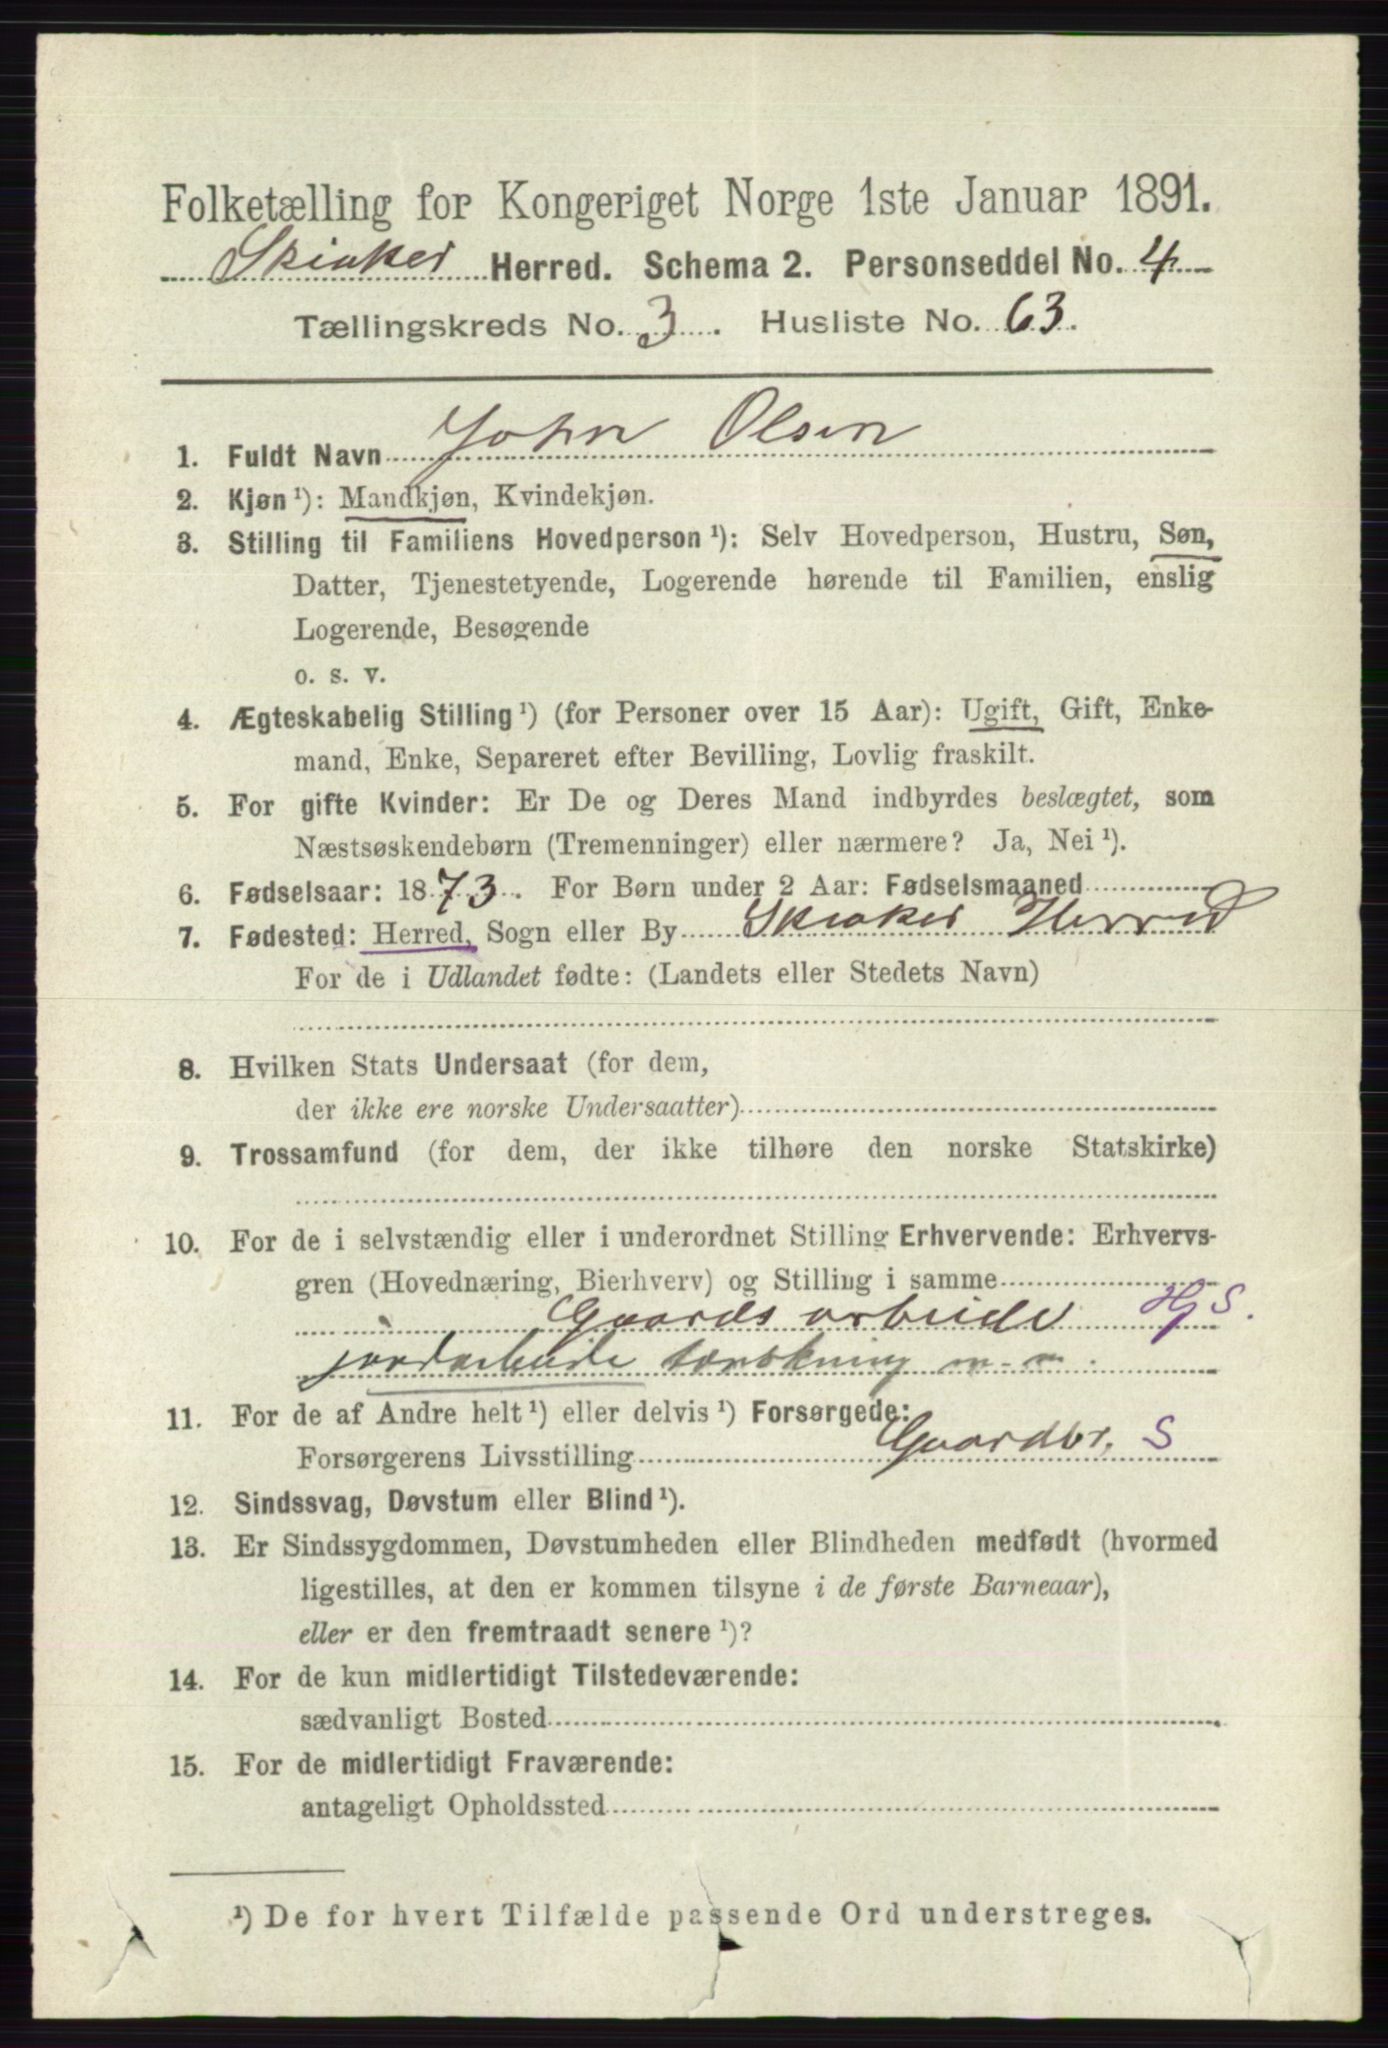 Folketælling for Kongeriget Norge 1ste Januar 1891.
Skiaker Herred. Schema 2. Personseddel No. 4
Tællingskreds No. 3. Husliste No. 63.
1. Fuldt Navn John Olsen
2. Kjøn ¹): Mandkjøn, Kvindekjøn.
3. Stilling til Familiens Hovedperson ¹): Selv Hovedperson, Hustru, Søn,
Datter, Tjenestetyende, Logerende hørende til Familien, enslig
Logerende, Besøgende
o. s. v.
4. Ægteskabelig Stilling ¹) (for Personer over 15 Aar): Ugift, Gift, Enke-
mand, Enke, Separeret efter Bevilling, Lovlig fraskilt.
5. For gifte Kvinder: Er De og Deres Mand indbyrdes beslægtet, som
Næstsøskendebørn (Tremenninger) eller nærmere? Ja, Nei ¹).
6. Fødselsaar: 1873. For Børn under 2 Aar: Fødselsmaaned
7. Fødested: Herred, Sogn eller By Skiaker Herred
For de i Udlandet fødte: (Landets eller Stedets Navn)
8. Hvilken Stats Undersaat (for dem,
der ikke ere norske Undersaatter)
9. Trossamfund (for dem, der ikke tilhøre den norske Statskirke)
10. For de i selvstændig eller i underordnet Stilling Erhvervende: Erhvervs-
gren (Hovednæring, Bierhverv) og Stilling i samme
Gaards arbeide HjS.
jordarbeide tærskning m. m.
11. For de af Andre helt ¹) eller delvis ¹) Forsørgede:
Forsørgerens Livsstilling Gaardbr. S
12. Sindssvag, Døvstum eller Blind ¹).
13. Er Sindssygdommen, Døvstumheden eller Blindheden medfødt (hvormed
ligestilles, at den er kommen tilsyne i de første Barneaar),
eller er den fremtraadt senere ¹)?
14. For de kun midlertidigt Tilstedeværende:
sædvanligt Bosted
15. For de midlertidigt Fraværende:
antageligt Opholdssted
¹) De for hvert Tilfælde passende Ord understreges.